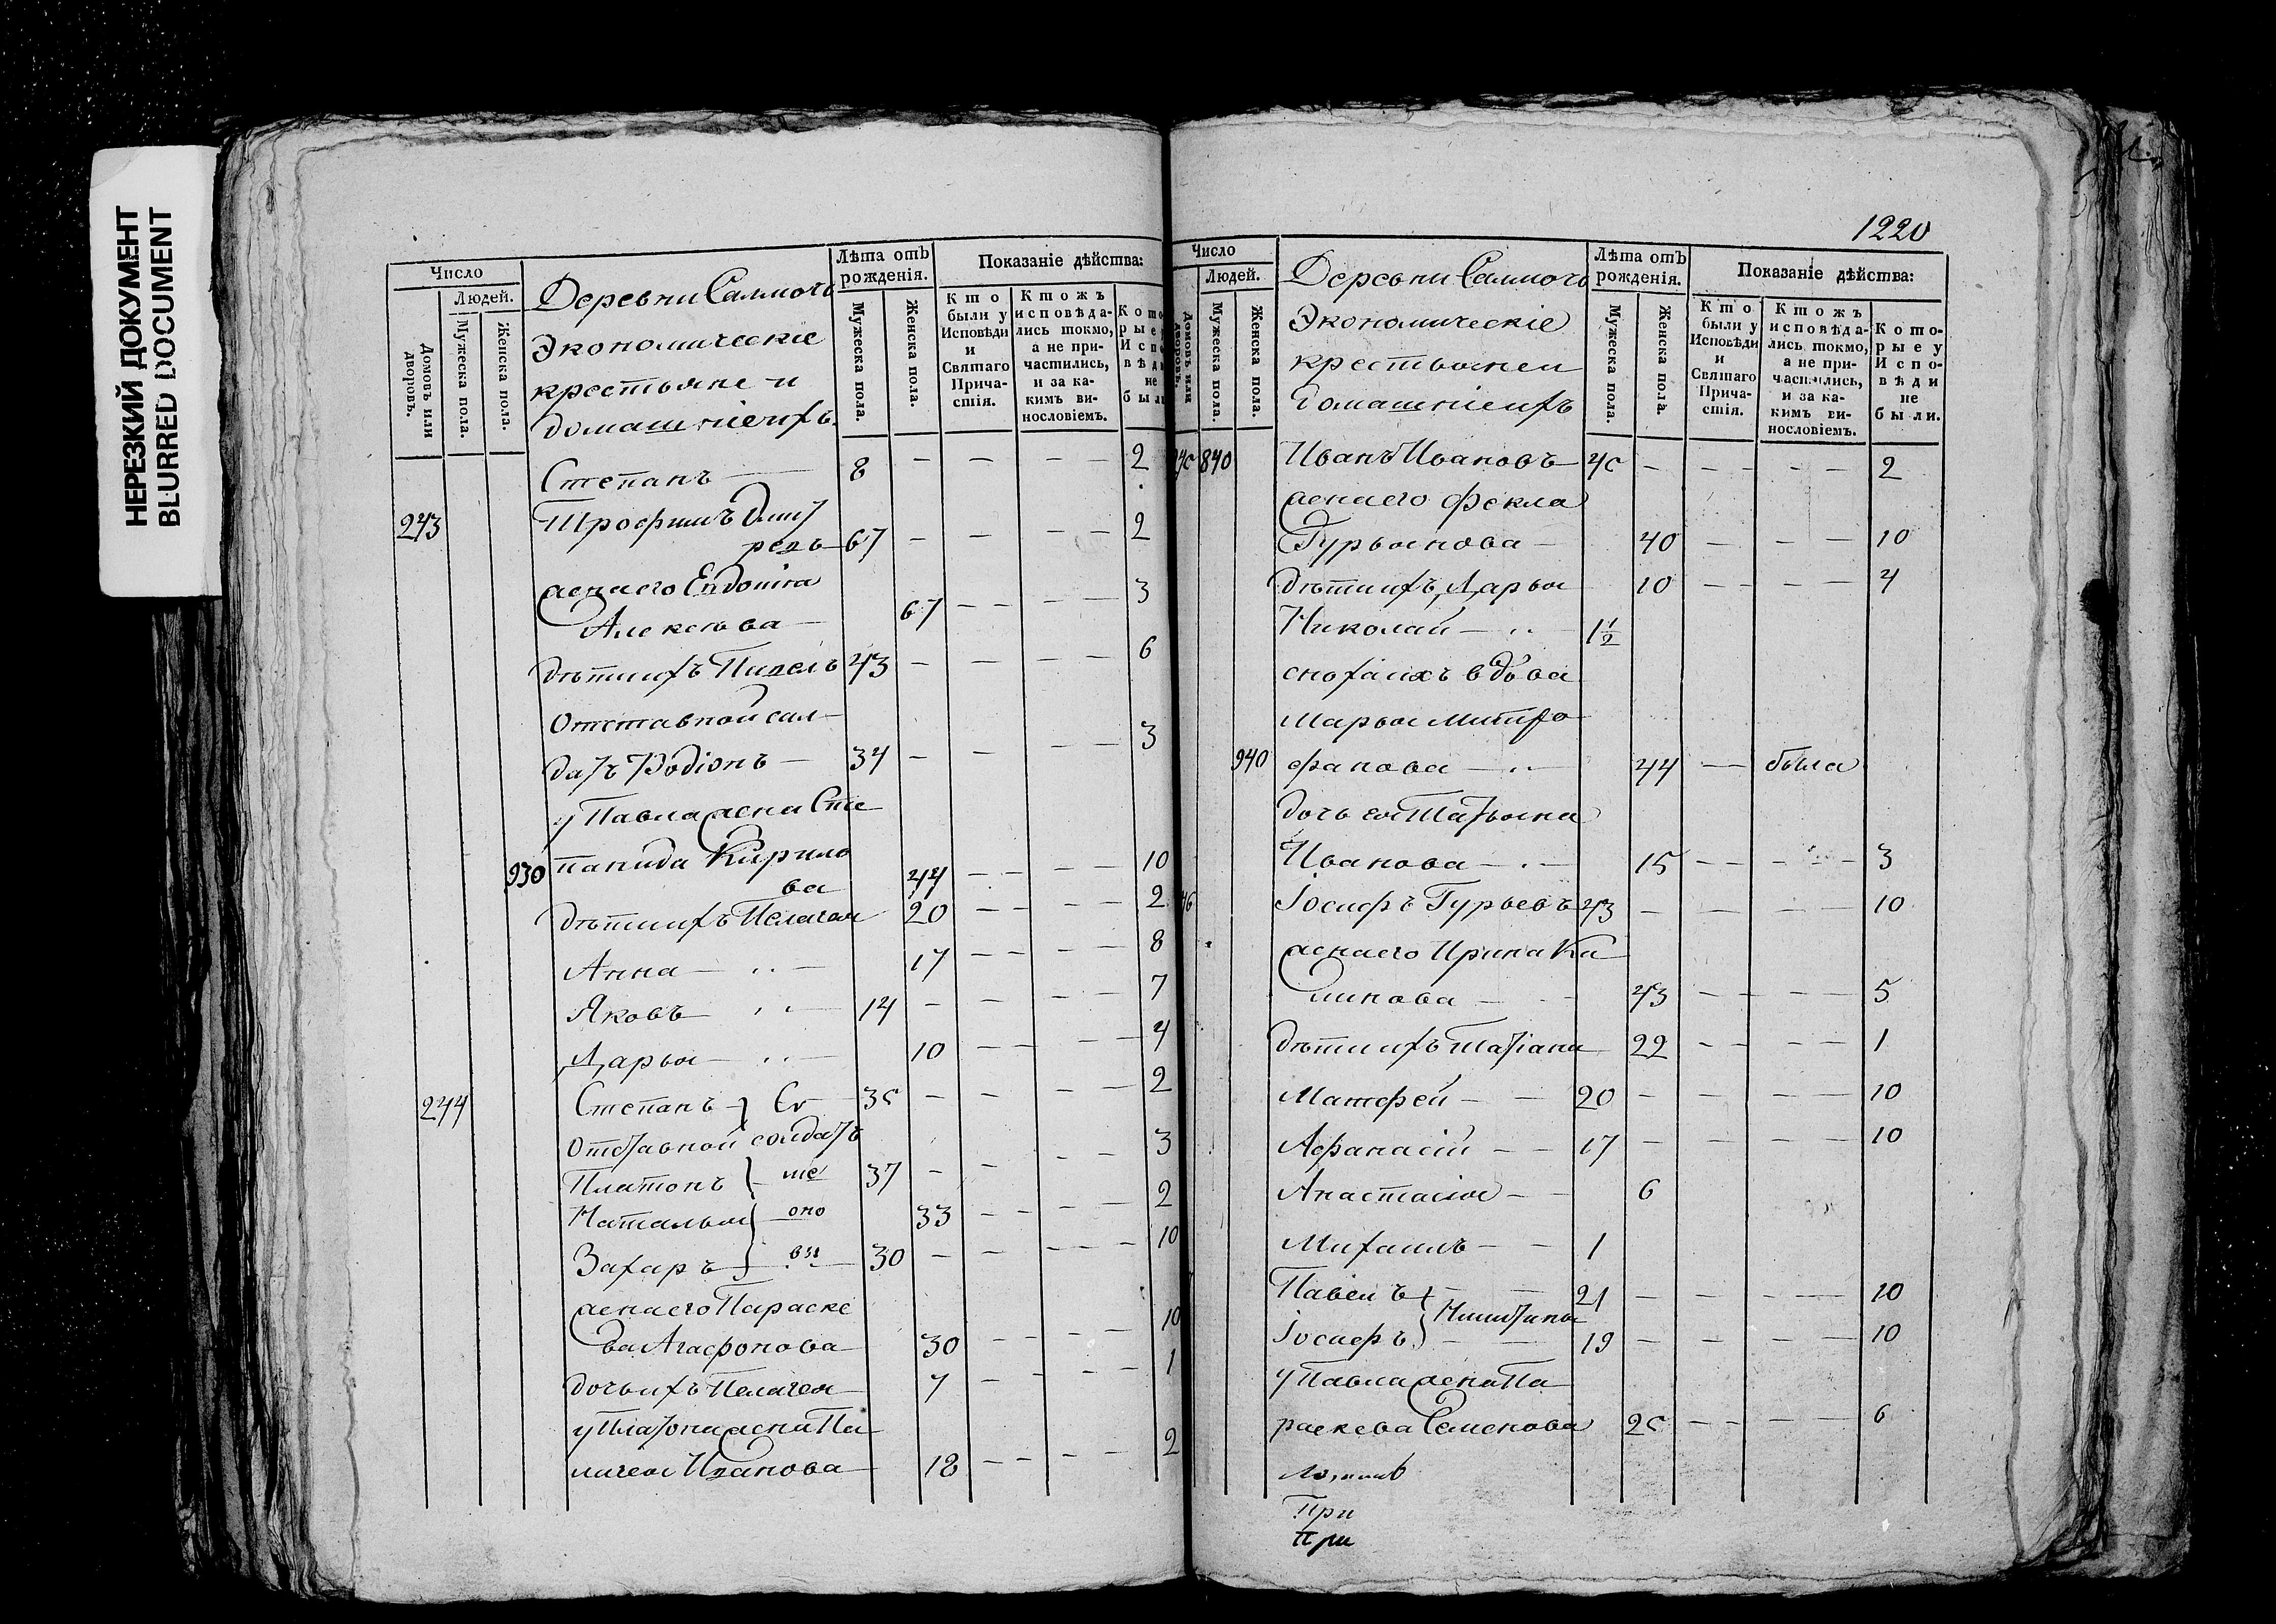 НЕРЕЗКИЙ ДОКУМЕНТ
BLURRED DOCUMENT
Число
Людей.
Домовъ или дворовъ.
Мужеска пола.
Женска пола.
Деревни
Экономическіе
крестьяне и
домашніе ихъ
Лѣта отъ рожденія.
Мужеска пола.
Женска пола.
Показаніе дѣйства:
Кто были у Исповѣди и Святаго Причастія.
Ктожъ исповѣдались токмо, а не причастились, и за какимъ винословіемъ.
Степанъ — 8 — — — — 2
243 Трофимъ Дмит
67 — — — — 2
жена его Евдокиа
Алексѣва — 67 — — — — 3
дѣти ихъ Павелъ 43 — — — — 6
Отставной сал
датъ Родіонъ — 34 — — — — 3
у Павла жена Сте
930 панида Кирило
ва 44 — — — — 10
дѣти ихъ Пелагея 20 — — — — 2
Анна — 17 — — — — 8
Яковъ — 14 — — — — 7
Дарья — 10 — — — — 4
244 Степанъ Ст — 35 — — — — 2
Отставной солдатъ
Платонъ — 37 — — — — 3
Наталья — оно 33 — — — — 2
Захаръ — вы — 30 — — — — 10
жена его Параске
ва Агафонова — 30 — — — — 10
дочь ихъ Пелагея — 7 — — — — 1
у Платона жена Пе
лагея Иванова — 18 — — — — 2
1220
Число
Людей.
Домовъ или дворовъ.
Мужеска пола.
Женска пола.
Деревни
Экономическіе
крестьяне и
домашніе ихъ
Лѣта отъ рожденія.
Мужеска пола.
Женска пола.
Показаніе дѣйства:
Кто были у Исповѣди и Святаго Причастія.
Ктожъ исповѣдались токмо, а не причастились, и за какимъ винословіемъ.
Которые у Исповѣди не были.
840 Иванъ Ивановъ — 45 — — — — 2
жена его Фекла
Гурьянова — 40 — — — 10
дѣти ихъ Дарья 10 — — — — 4
Николай — 1½
сноха ихъ вдова
Марья Митро
940 фанова — 44 — была
дочь ея Татьяна
Иванова — 15 — — — — 3
Іосифъ Гурьевъ 43 — — — — 10
жена его Ирина Ки
43 — — — — 5
дѣти ихъ Татіана 22 — — — — 1
Матфей — — 20 — — — — 10
Афанасій — — 17 — — — — 10
Анастасія — — 6
Михаилъ — — 1
Павелъ — — 21 — — — — 10
Никитины
Іосифъ — 19 — — — — 10
у Павла жена Па
раскева Семенова 25 — — — — 6
При
При